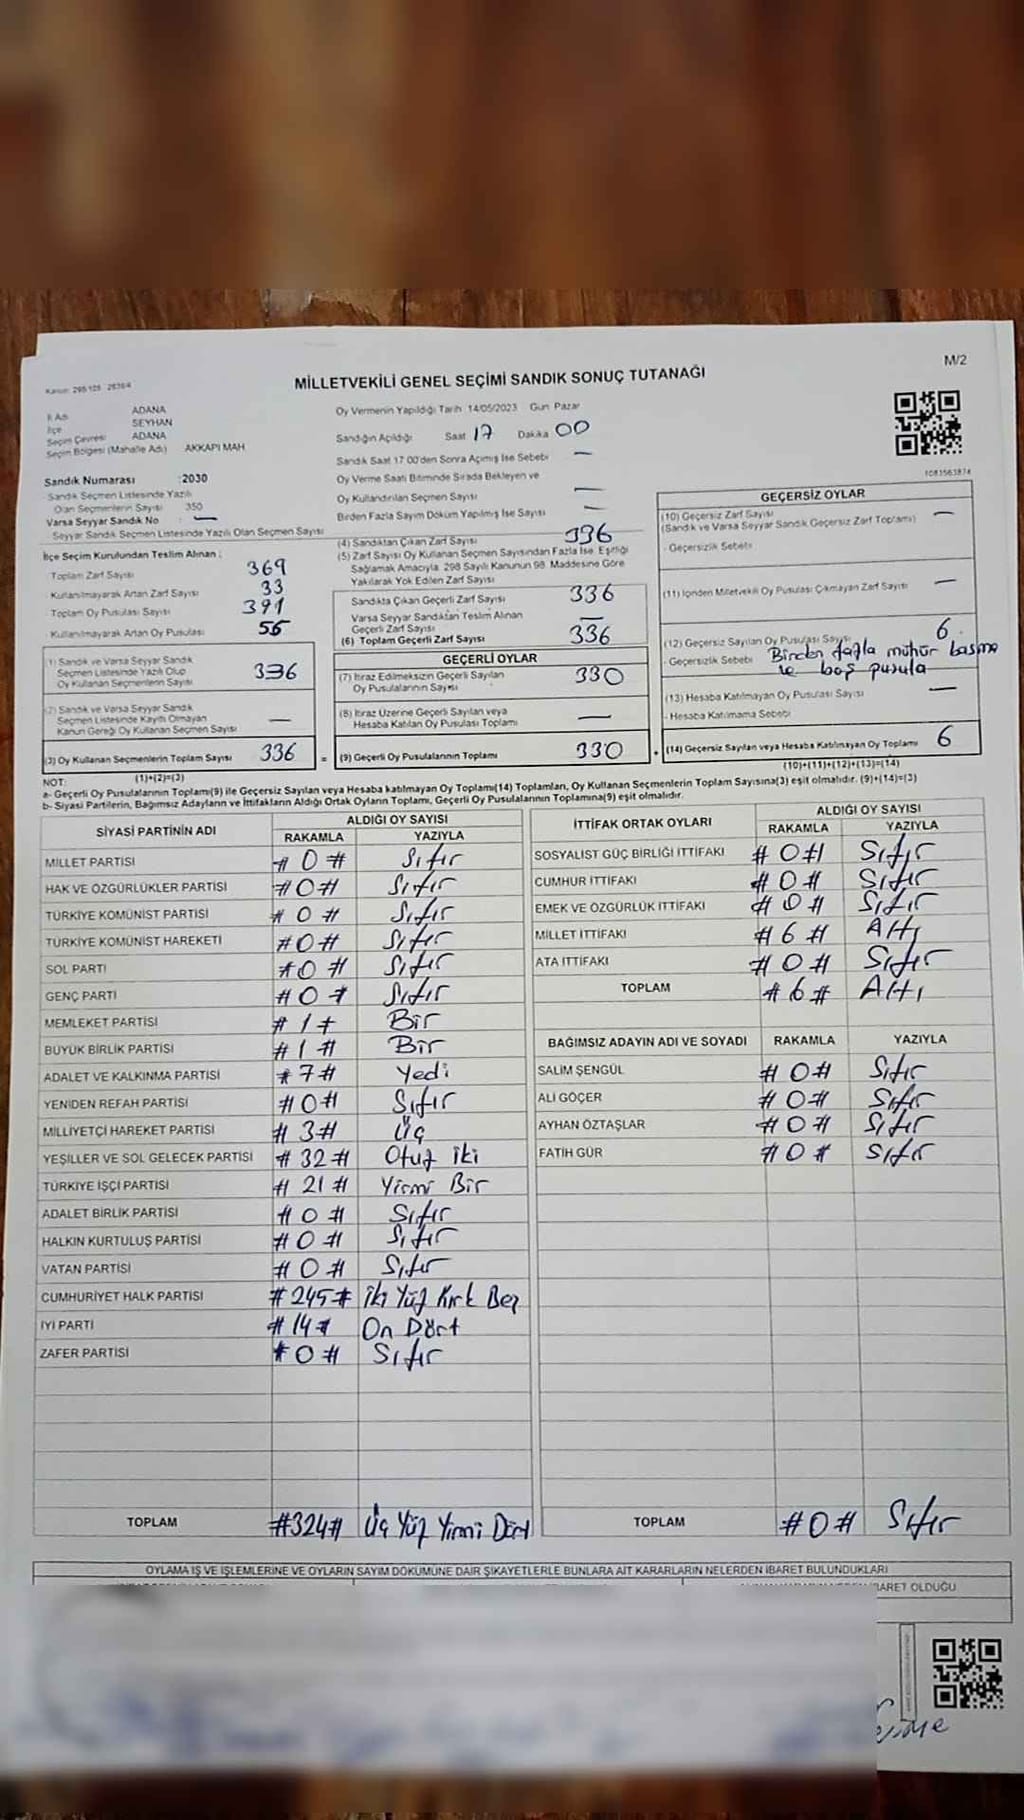 M/2
Kanun: 298/105 2839/4
MİLLETVEKİLİ GENEL SEÇİMİ SANDIK SONUÇ TUTANAĞI
İl Adı ADANA
İlçe SEYHAN
Seçim Çevresi ADANA
Seçim Bölgesi (Mahalle Adı) AKKAPI MAH
Oy Vermenin Yapıldığı Tarih 14/05/2023 Gün Pazar
Sandığın Açıldığı Saat 17 Dakika 00
Sandık Saat 17 00'den Sonra Açılmış İse Sebebi —
Oy Verme Saati Bitiminde Sırada Bekleyen ve
Oy Kullandırılan Seçmen Sayısı —
Birden Fazla Sayım Döküm Yapılmış İse Sayısı —
1083563874
Sandık Numarası :2030
Sandık Seçmen Listesinde Yazılı
Olan Seçmenlerin Sayısı 350
Varsa Seyyar Sandık No : —
Seyyar Sandık Seçmen Listesinde Yazılı Olan Seçmen Sayısı
İlçe Seçim Kurulundan Teslim Alınan ;
Toplam Zarf Sayısı 369
Kullanılmayarak Artan Zarf Sayısı 33
Toplam Oy Pusulası Sayısı 391
Kullanılmayarak Artan Oy Pusulası 55
(1) Sandık ve Varsa Seyyar Sandık
Seçmen Listesinde Yazılı Olup
Oy Kullanan Seçmenlerin Sayısı 336
(2) Sandık ve Varsa Seyyar Sandık
Seçmen Listesinde Kayıtlı Olmayan
Kanun Gereği Oy Kullanan Seçmen Sayısı —
(3) Oy Kullanan Seçmenlerin Toplam Sayısı 336
(1)+(2)=(3)
(4) Sandıktan Çıkan Zarf Sayısı 336
(5) Zarf Sayısı Oy Kullanan Seçmen Sayısından Fazla İse, Eşitliği
Sağlamak Amacıyla, 298 Sayılı Kanunun 98. Maddesine Göre
Yakılarak Yok Edilen Zarf Sayısı
Sandıkta Çıkan Geçerli Zarf Sayısı 336
Varsa Seyyar Sandıktan Teslim Alınan
Geçerli Zarf Sayısı —
(6) Toplam Geçerli Zarf Sayısı 336
GEÇERLİ OYLAR
(7) İtiraz Edilmeksizin Geçerli Sayılan
Oy Pusulalarının Sayısı 330
(8) İtiraz Üzerine Geçerli Sayılan veya
Hesaba Katılan Oy Pusulası Toplamı —
= (9) Geçerli Oy Pusulalarının Toplamı 330
GEÇERSİZ OYLAR
(10) Geçersiz Zarf Sayısı —
(Sandık ve Varsa Seyyar Sandık Geçersiz Zarf Toplamı)
- Geçersizlik Sebebi
(11) İçinden Milletvekili Oy Pusulası Çıkmayan Zarf Sayısı —
(12) Geçersiz Sayılan Oy Pusulası Sayısı 6
- Geçersizlik Sebebi Birden fazla mühür basma
ve boş pusula
(13) Hesaba Katılmayan Oy Pusulası Sayısı —
- Hesaba Katılmama Sebebi
+ (14) Geçersiz Sayılan veya Hesaba Katılmayan Oy Toplamı 6
(10)+(11)+(12)+(13)=(14)
NOT:
a- Geçerli Oy Pusulalarının Toplamı(9) ile Geçersiz Sayılan veya Hesaba katılmayan Oy Toplamı(14) Toplamları, Oy Kullanan Seçmenlerin Toplam Sayısına(3) eşit olmalıdır. (9)+(14)=(3)
b- Siyasi Partilerin, Bağımsız Adayların ve İttifakların Aldığı Ortak Oyların Toplamı, Geçerli Oy Pusulalarının Toplamına(9) eşit olmalıdır.
SİYASİ PARTİNİN ADI ALDIĞI OY SAYISI
RAKAMLA YAZIYLA
MİLLET PARTİSİ # 0 # Sıfır
HAK VE ÖZGÜRLÜKLER PARTİSİ #0# Sıfır
TÜRKİYE KOMÜNİST PARTİSİ # 0 # Sıfır
TÜRKİYE KOMÜNİST HAREKETİ #0# Sıfır
SOL PARTİ #0# Sıfır
GENÇ PARTİ #0# Sıfır
MEMLEKET PARTİSİ # 1 # Bir
BÜYÜK BİRLİK PARTİSİ # 1 # Bir
ADALET VE KALKINMA PARTİSİ # 7# Yedi
YENİDEN REFAH PARTİSİ #0# Sıfır
MİLLİYETÇİ HAREKET PARTİSİ # 3# Üç
YEŞİLLER VE SOL GELECEK PARTİSİ # 32 # Otuz iki
TÜRKİYE İŞÇİ PARTİSİ # 21 # Yirmi Bir
ADALET BİRLİK PARTİSİ #0# Sıfır
HALKIN KURTULUŞ PARTİSİ #0# Sıfır
VATAN PARTİSİ #0# Sıfır
CUMHURİYET HALK PARTİSİ # 245# İki Yüz Kırk Beş
İYİ PARTİ # 14# On Dört
ZAFER PARTİSİ #0# Sıfır
TOPLAM #324# Üç Yüz Yirmi Dört
İTTİFAK ORTAK OYLARI ALDIĞI OY SAYISI
RAKAMLA YAZIYLA
SOSYALİST GÜÇ BİRLİĞİ İTTİFAKI # 0# Sıfır
CUMHUR İTTİFAKI # 0 # Sıfır
EMEK VE ÖZGÜRLÜK İTTİFAKI # 0 # Sıfır
MİLLET İTTİFAKI # 6 # Altı
ATA İTTİFAKI # 0 # Sıfır
TOPLAM # 6 # Altı
BAĞIMSIZ ADAYIN ADI VE SOYADI RAKAMLA YAZIYLA
SALİM ŞENGÜL # 0# Sıfır
ALİ GÖÇER #0# Sıfır
AYHAN ÖZTAŞLAR #0# Sıfır
FATİH GÜR #0# Sıfır
TOPLAM #0# Sıfır
OYLAMA İŞ VE İŞLEMLERİNE VE OYLARIN SAYIM DÖKÜMÜNE DAİR ŞİKAYETLERLE BUNLARA AİT KARARLARIN NELERDEN İBARET BULUNDUKLARI
BARET OLDUĞU